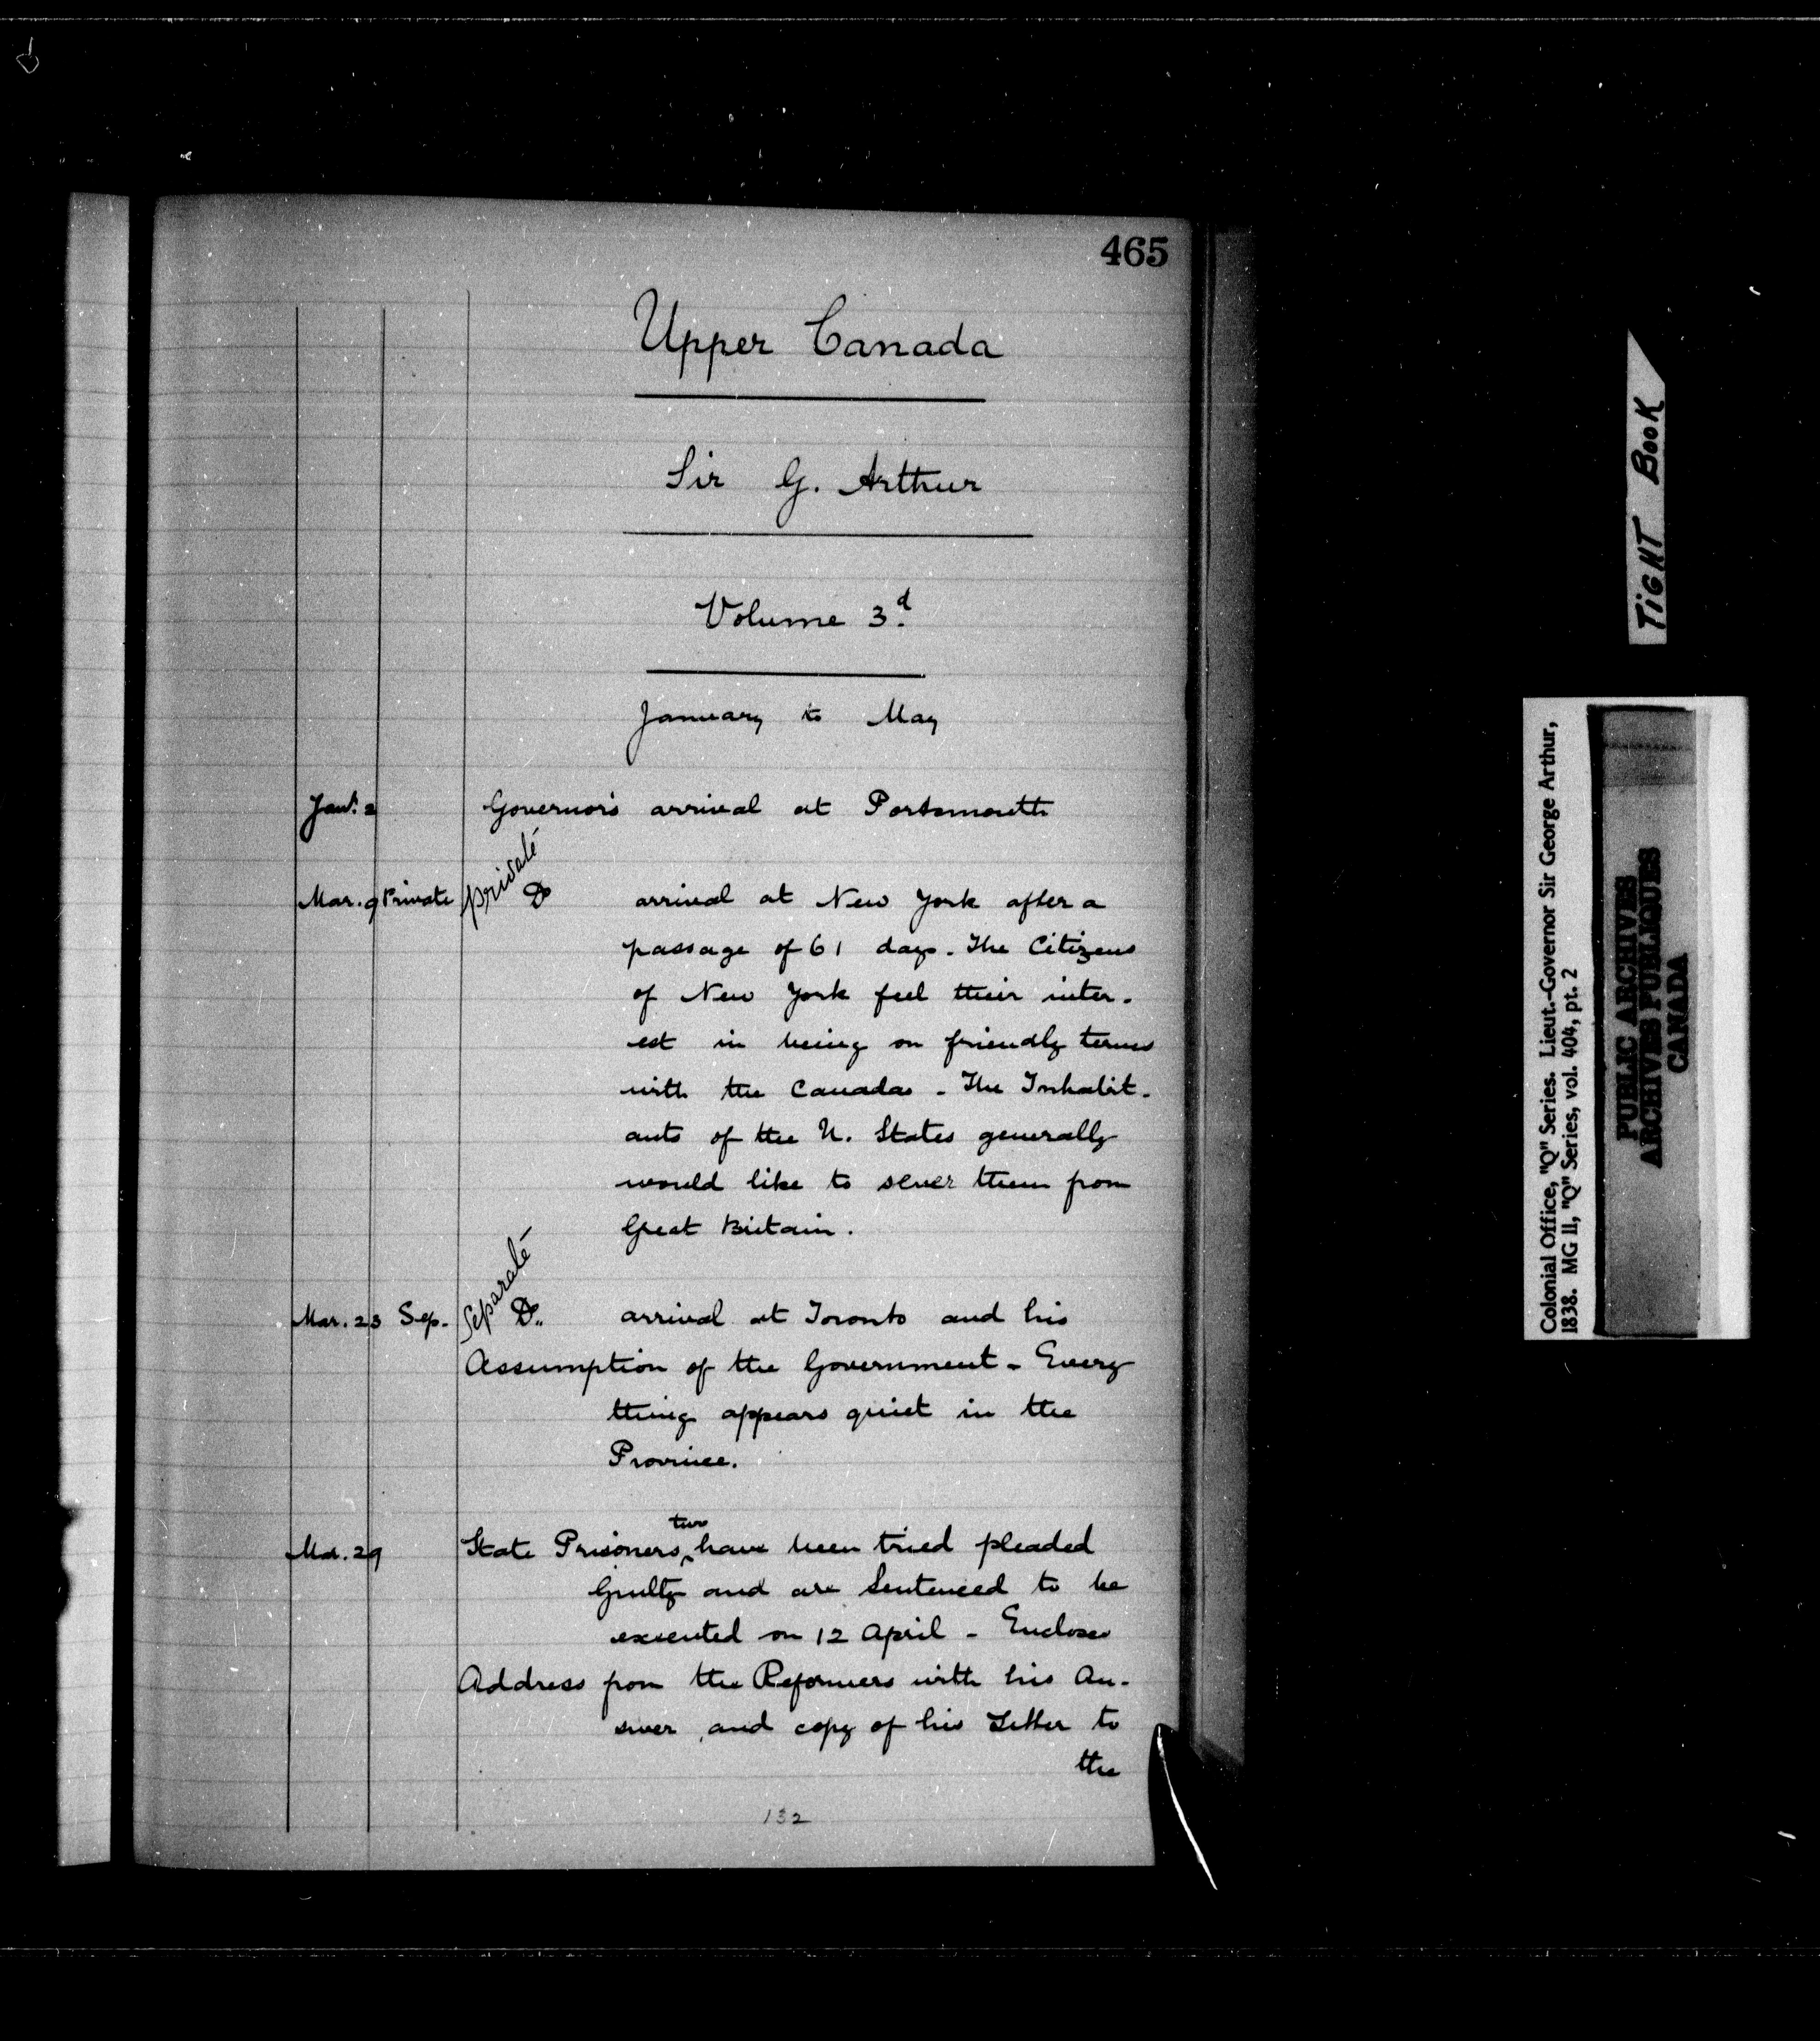 465
Upper Canada
Sir G. Arthur
Volume 3.d
January to May
Jany. 2 Governor's arrival at Portsmouth
Mar. 9 Private private Do arrival at New York after a
passage of 61 days. The Citizens
of New York feel their inter-
est in being on friendly terms
with the Canadas - The Inhabit-
ants of the U. States generally
would like to sever them from
Great Britain.
Mar. 23 Sep. Separate Do. arrival at Toronto and his
Assumption of the Government - Every
thing appears quiet in the
Province.
Mar. 29 State Prisoners, two have been tried pleaded
Guilty and are Sentenced to be
executed on 12 April - Encloses
Address from the Reformers with his An-
swer, and copy of his Letter to
the
132
TIGHT BOOK
Colonial Office, "Q" Series. Lieut.-Governor Sir George Arthur,
1838. MG 11, "Q" Series, vol. 404, pt. 2
PUBLIC ARCHIVES
ARCHIVES PUBLIQUES
CANADA